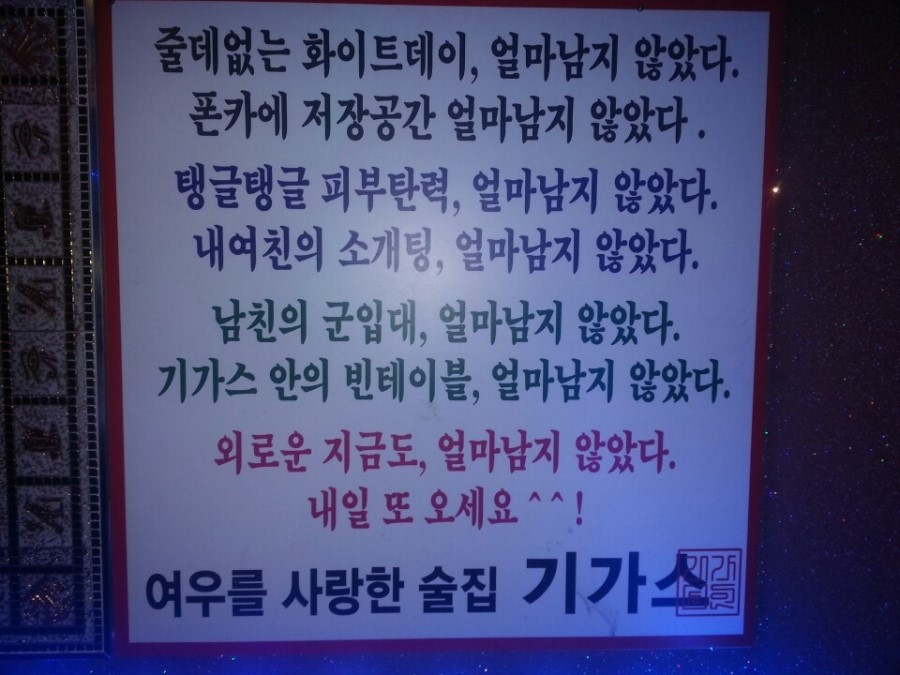 줄데없는 화이트데이, 얼마남지 않았다.
폰카에 저장공간 얼마남지 않았다.
탱글탱글 피부탄력, 얼마남지 않았다.
내여친의 소개팅, 얼마남지 않았다.
남친의 군입대, 얼마남지 않았다.
기가스 안의 빈테이블, 얼마남지 않았다.
외로운 지금도, 얼마남지 않았다.
내일 또 오세요^^!
여우를 사랑한 술집 기가스